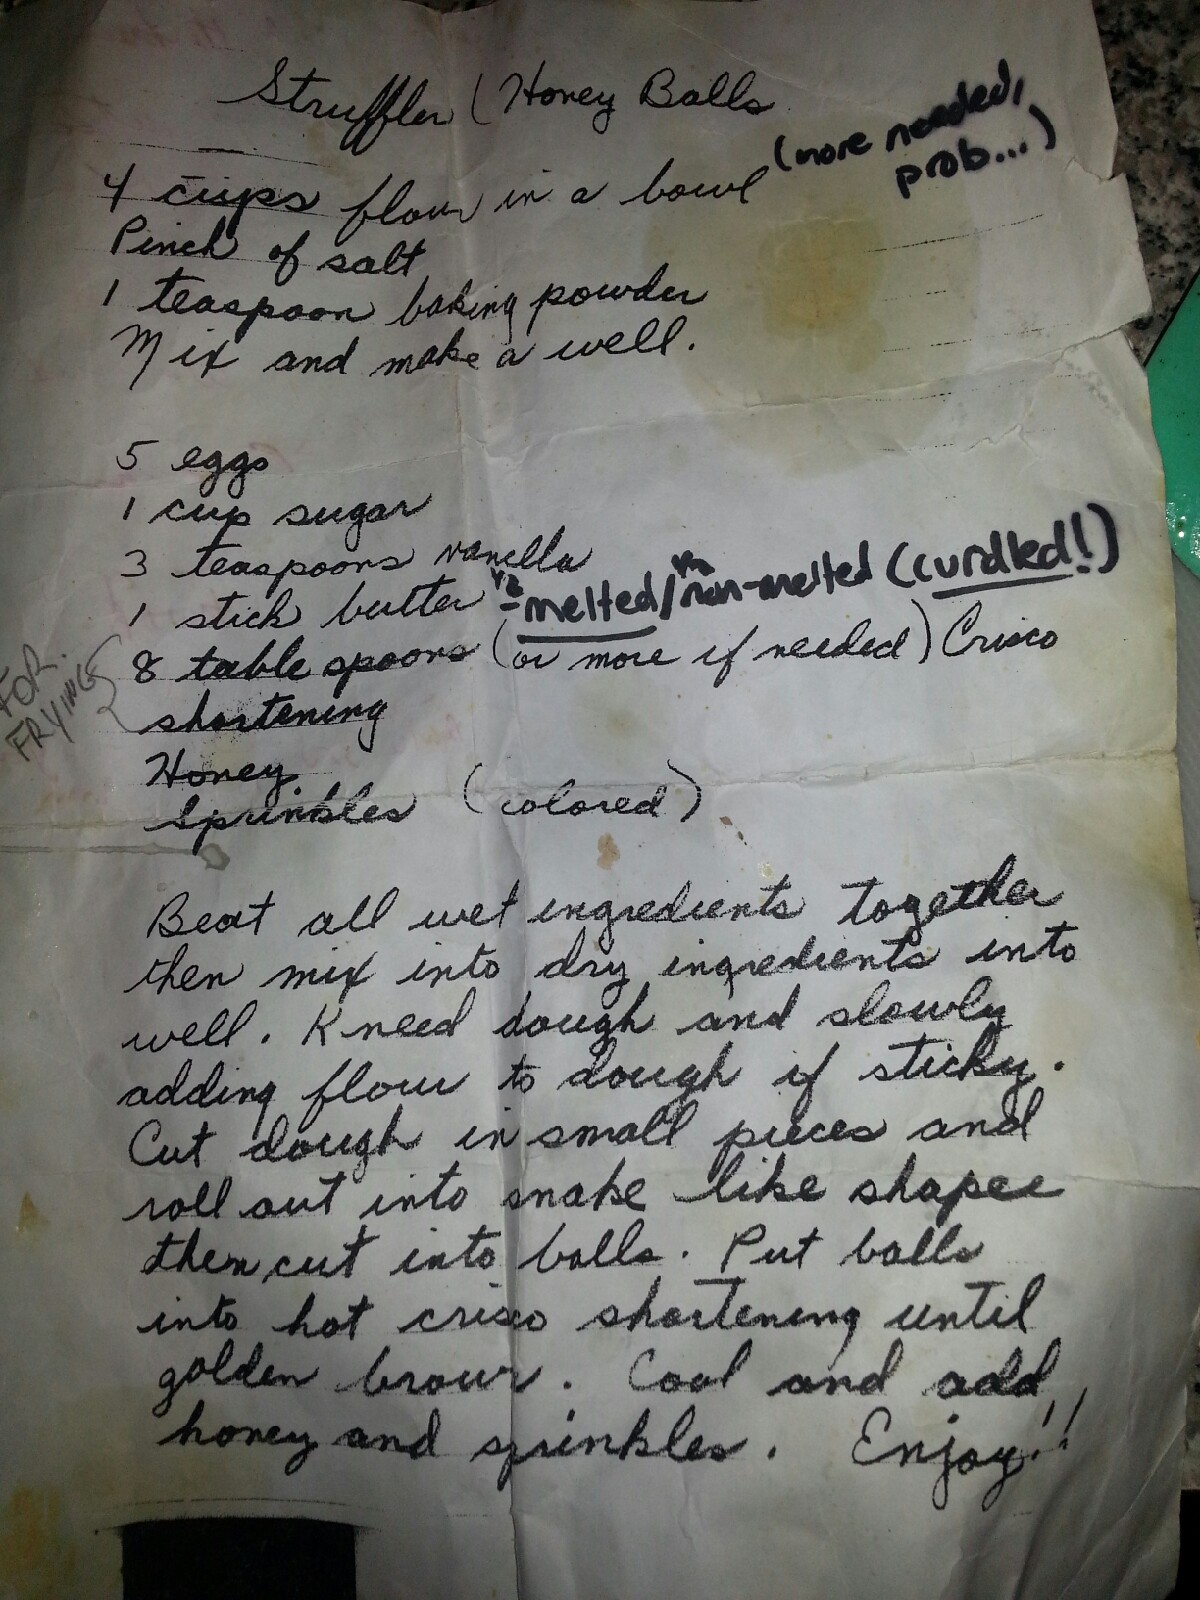 Struffler (Honey Balls
4 cups flour in a bowl (more needed,
prob...)
Pinch of salt
1 teaspoon baking powder
Mix and make a well.
5 eggs
1 cup sugar
3 teaspoons vanilla
1 stick butter 1/2 - melted/ 1/2 non-melted (curdled!)
FOR FRYING 8 table spoons (or more if needed) Crisco
shortening
Honey
Sprinkles (colored)
Beat all wet ingredients together
then mix into dry ingredients into
well. Kneed dough and slowly
adding flour to dough if sticky.
Cut dough in small pieces and
roll out into snake like shapes
then cut into balls. Put balls
into hot crisco shortening until
golden brown. Cool and add
honey and sprinkles. Enjoy!!